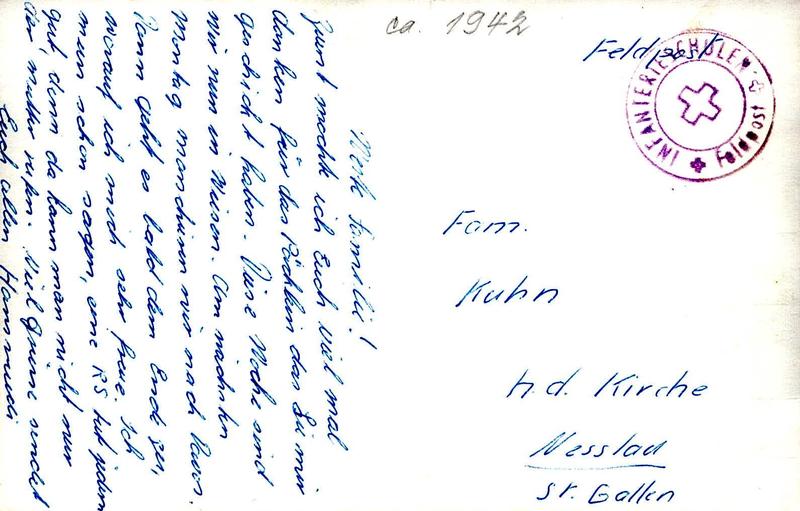 ca. 1942
Feldpost
INFANTERIESCHULEN
Feldpost
Fam.
Kuhn
h.d. Kirche
Nesslau
St. Gallen
Werte Familie!
Zuerst möchte ich Euch viel mal
danken für das Päcklein das Sie mir
geschickt haben. Diese Woche sind
wir nun in Weisen. Am nächsten
Montag marschieren wir nach Davos.
Dann geht es bald dem Ende zu,
worauf ich mich sehr freue. Ich
muss schon sagen, eine RS tut jedem
gut, denn da kann man nicht nur
der Mutter rufen. Viel Grüsse sendet
Euch allen Hansruedi